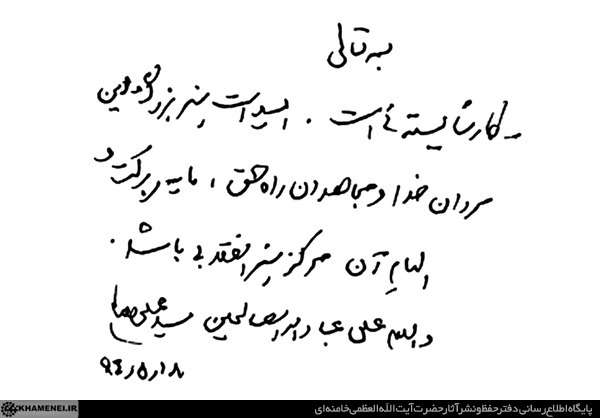 بسمه تعالی
ـ کار شایسته‌ئی است . امید است هنر بزرگ و دین
مردان خدا و مجاهدان راه حق ، مایه برکت و
الهامِ آن مرکز هنر انقلابی باشد .
والسلام علی عبادالله الصالحین سیدعلی خامنه‌ای
۹۴/۵/۱۸
KHAMENEI.IR
پایگاه اطلاع‌رسانی دفتر حفظ و نشر آثار حضرت آیت‌الله‌العظمی خامنه‌ای